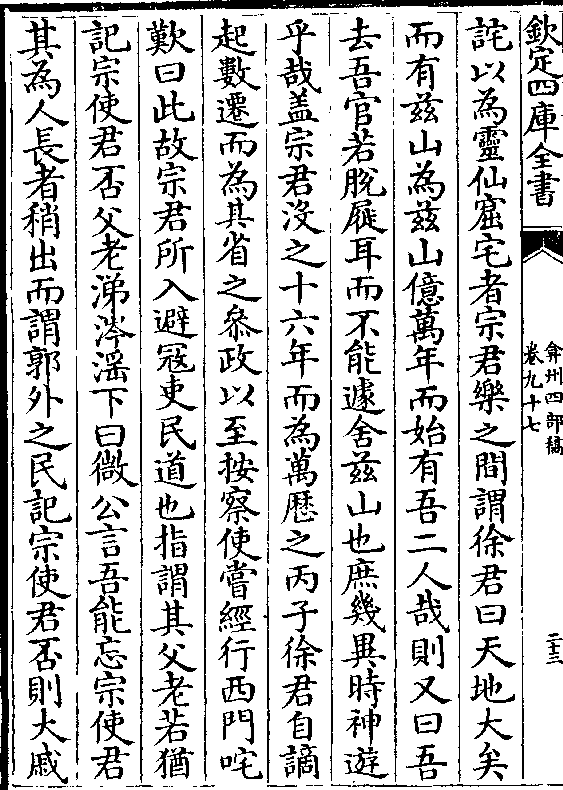 欽定四庫全書
弇州四部稿
卷九十七
二十三
詫以為靈仙窟宅者宗君樂之間謂徐君曰天地大矣
而有兹山為兹山億萬年而始有吾二人哉則又曰吾
去吾官若脫屣耳而不能遽舍兹山也庶幾異時神遊
乎哉盖宗君沒之十六年而為萬厯之丙子徐君自謫
起數遷而為其省之叅政以至按察使嘗經行西門咤
歎曰此故宗君所入避寇吏民道也指謂其父老若猶
記宗使君否父老涕涔滛下曰微公言吾能忘宗使君
其為人長者稍出而謂郭外之民記宗使君否則大戚